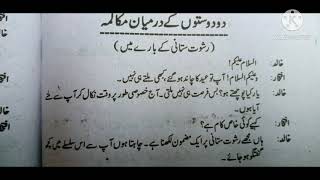 دو دوستوں کے درمیان مکالمہ
(رشوت ستانی کے بارے میں)
خالد: السلام علیکم!
افتخار: وعلیکم السلام! آپ تو عید کا چاند ہو گئے، کبھی ملتے ہی نہیں۔
خالد: یار کیا پوچھتے ہو؟ بس فرصت ہی نہیں ملتی۔ آج خصوصی طور پر وقت نکال کر آپ سے ملنے
آیا ہوں۔
افتخار: کہیے کوئی خاص کام ہے؟
خالد: ہاں مجھے رشوت ستانی پر ایک مضمون لکھنا ہے۔ چاہتا ہوں آپ سے اس سلسلے میں کچھ
گفتگو ہو جائے۔